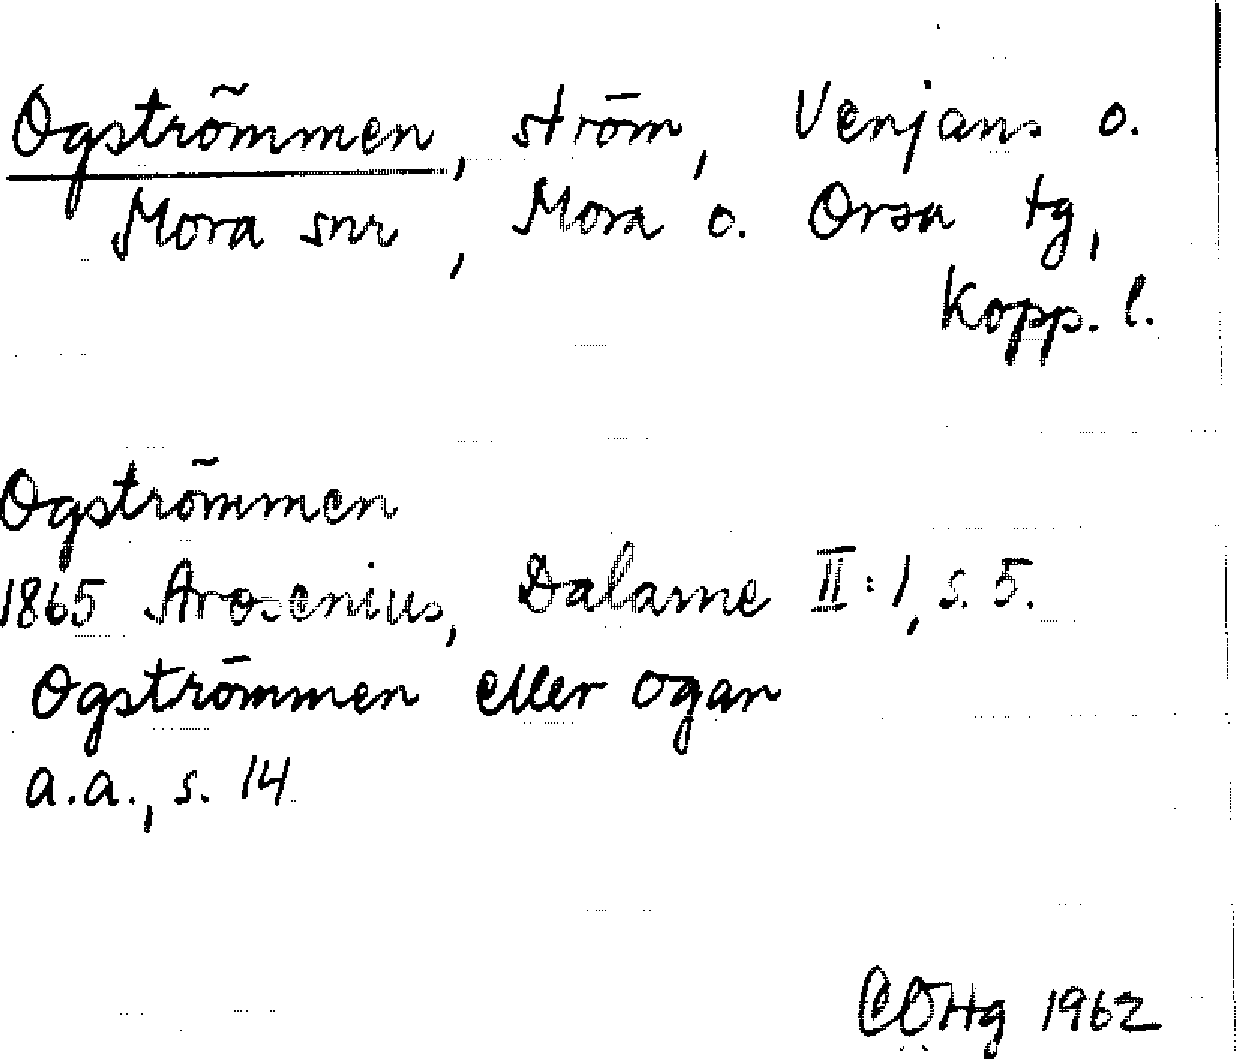 Ogströmmen, ström, Venjans o.
Mora snr, Mora o. Orsa tg,
Kopp. l.
Ogströmmen
1865 Arosenius, Dalarne II:1, s. 5.
Ogströmmen eller Ogan
a.a., s. 14
CÖHg 1962